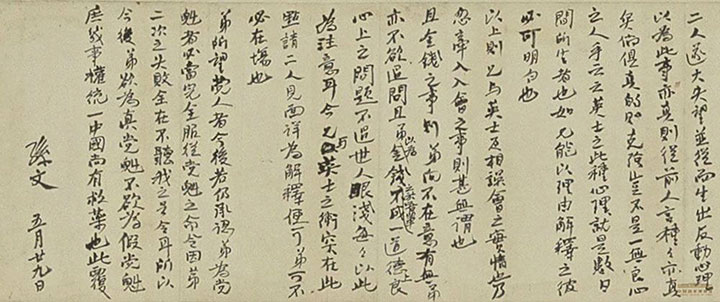 二人遂大失望並從而生出反動心理
以為此事亦真則從前人言種々亦真
矣倘俱真的則克強豈不是一無良心
之人乎云云英士之此種心理就是數日
間所生者也如兄能以理由解釋之彼
必可明白也
以上則兄與英士互相誤會之實情也乃
忽牽入入會之事則甚無謂也
且金錢之事則弟向不在意有無弟
亦不欲過問且弟以為金錢不成一道德上良
心上之問題不過世人眼淺每々以此
為注意耳今兄與英士之衝突在此
點請二人見面詳為解釋便可弟可不
必在場也
弟所望党人者今後若仍承認弟為党
魁者必當完全服從党魁之命令因第
二次之失敗全在不聽我之令耳所以
今後弟欲為真党魁不欲為假党魁
庶幾事權統一中國尚有救藥也此覆
孫文 五月廿九日